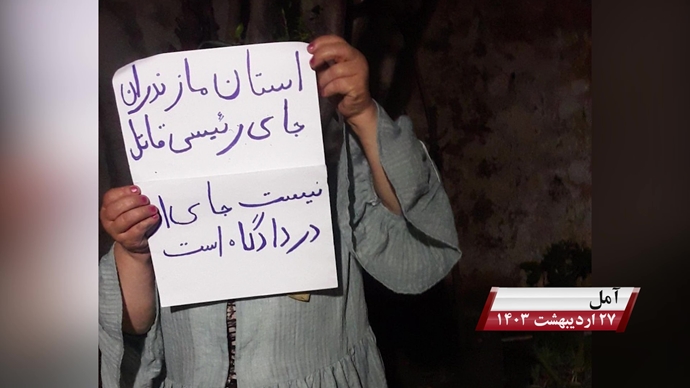 استان مازندران
جای رئیسی قاتل
نیست جای ا
در دادگاه است
آمل
۲۷ اردیبهشت ۱۴۰۳